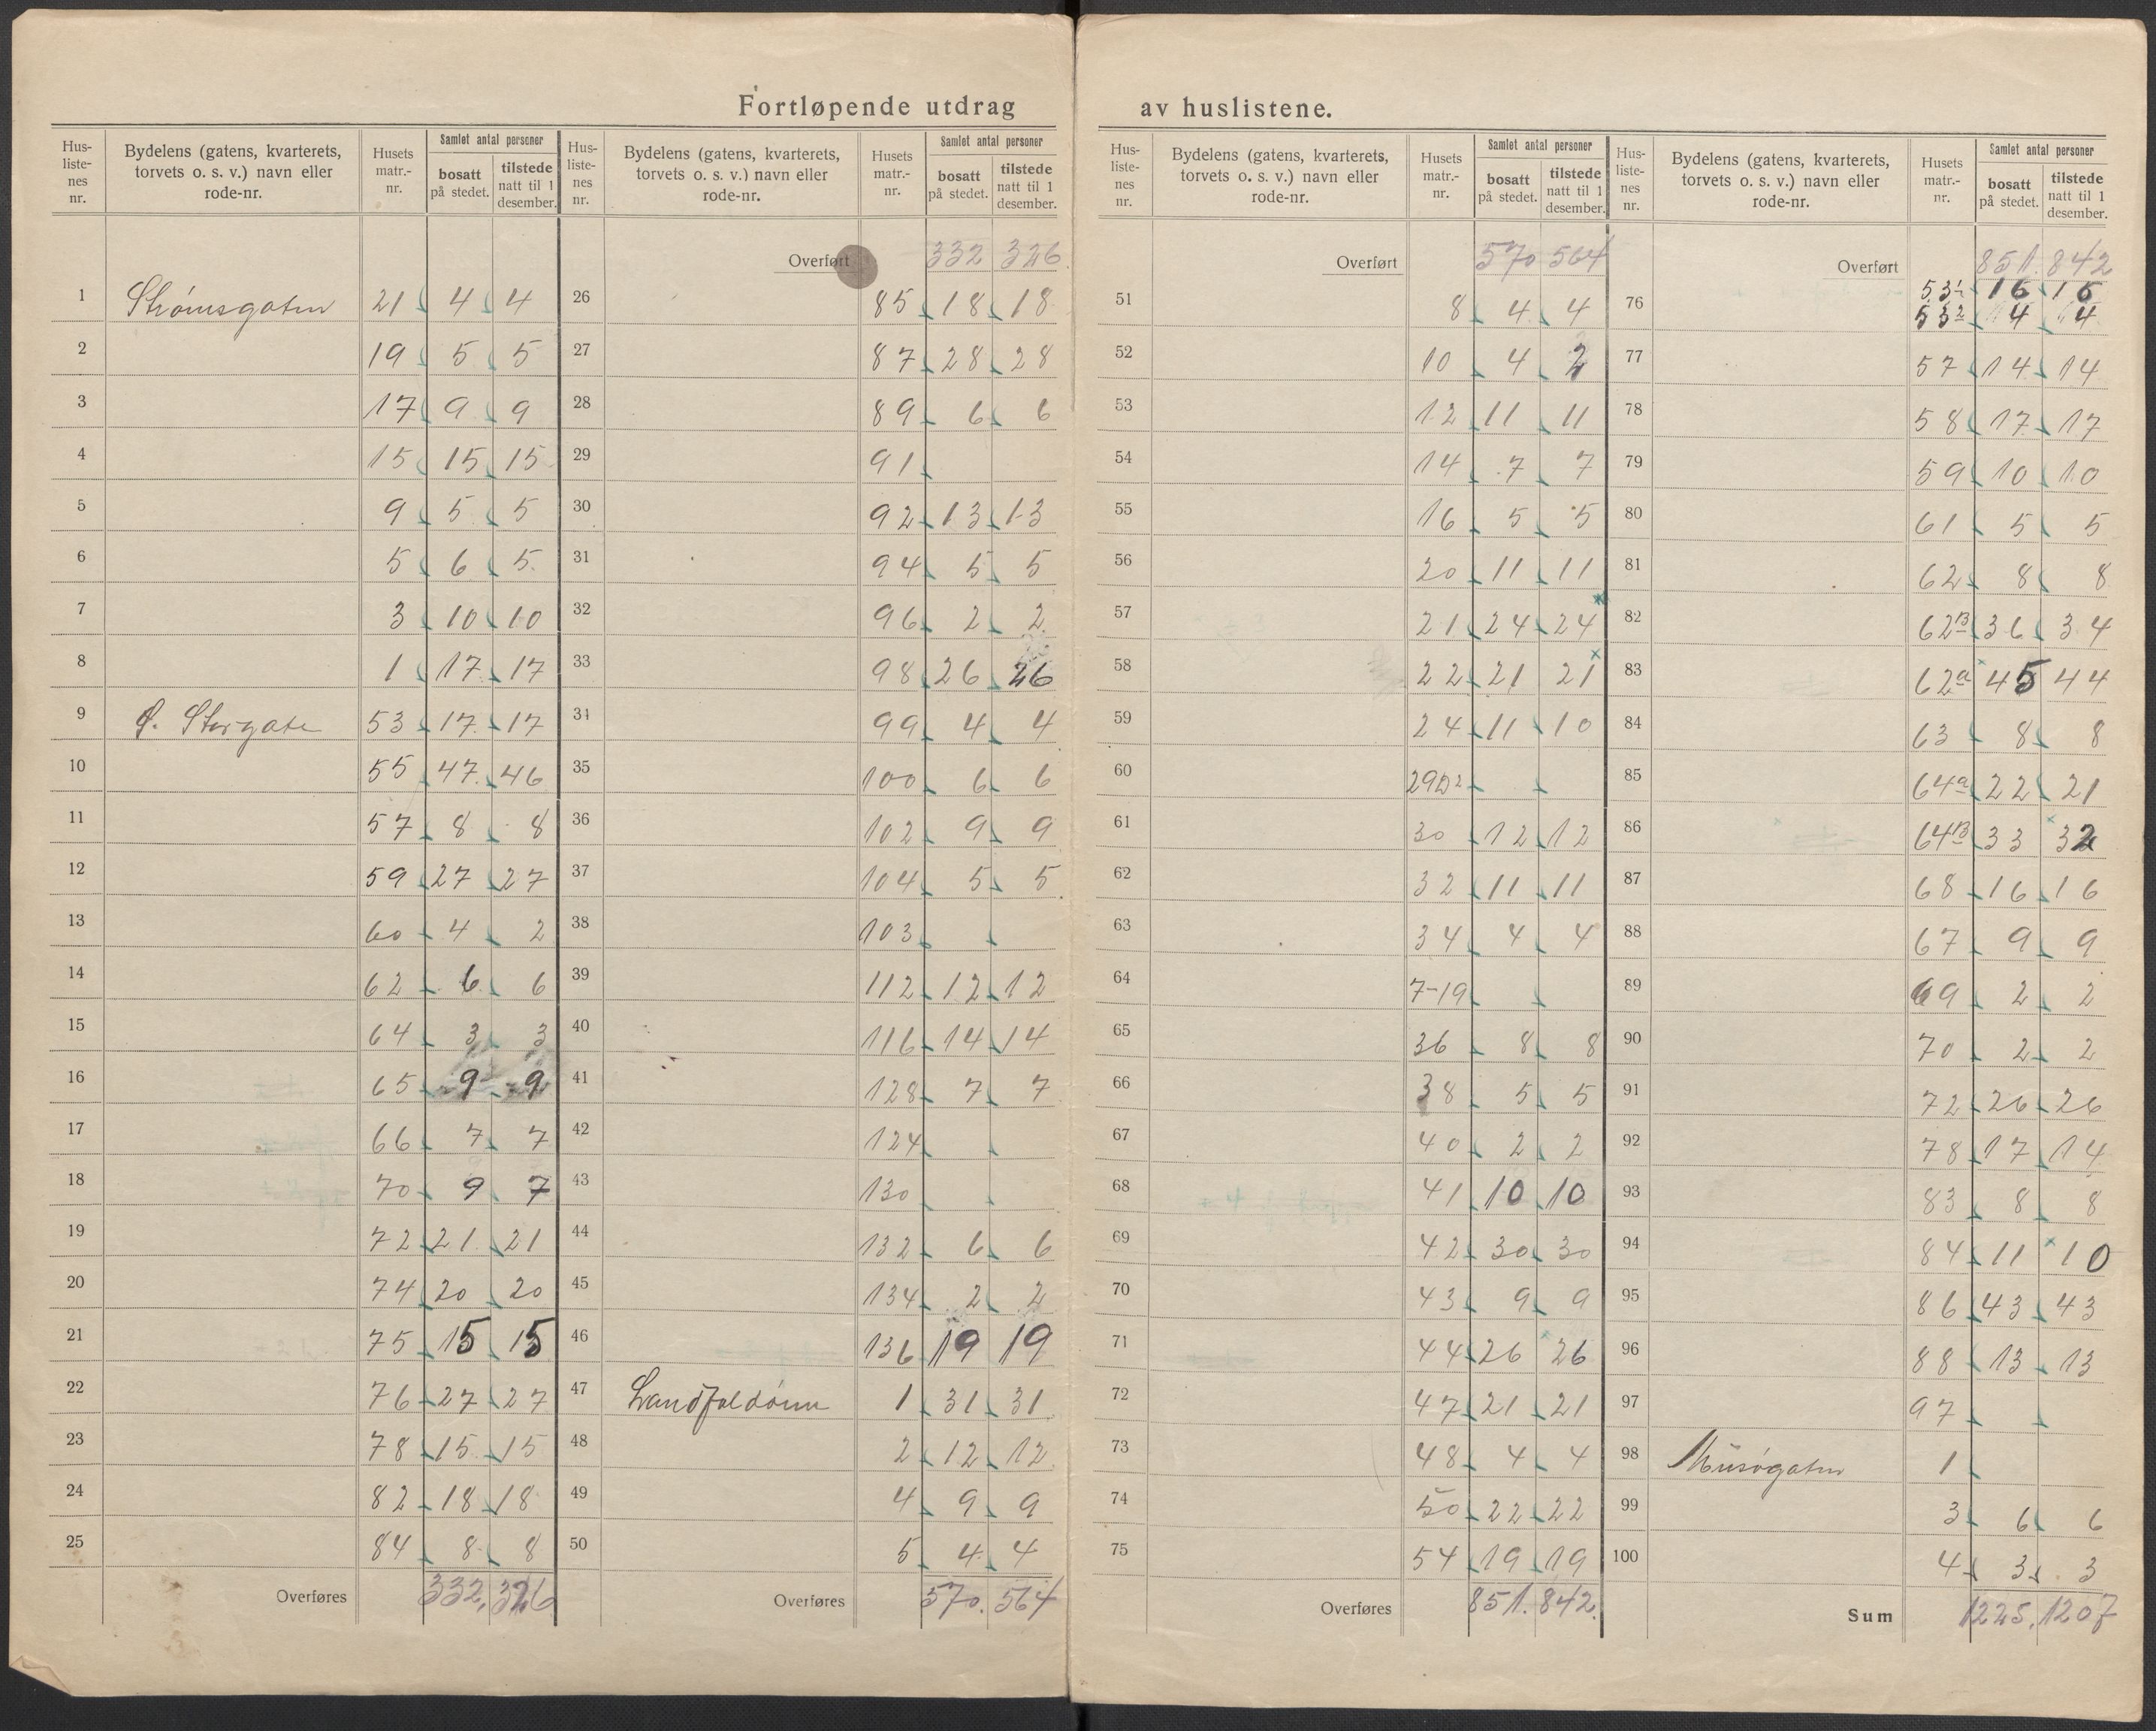 Fortløpende utdrag av huslistene.
Hus-liste-nes nr. Bydelens (gatens, kvarterets, torvets o. s. v.) navn eller rode-nr. Husets matr.-nr. Samlet antal personer bosatt på stedet. tilstede natt til 1 desember.
1 Strømsgaten 21 4 4
2 19 5 5
3 17 9 9
4 15 15 15
5 9 5 5
6 5 6 5
7 3 10 10
8 1 17 17
9 Ø. Storgate 53 17 17
10 55 47 46
11 57 8 8
12 59 27 27
13 60 4 2
14 62 6 6
15 64 3 3
16 65 9 9
17 66 7 7
18 70 9 7
19 72 21 21
20 74 20 20
21 75 15 15
22 76 27 27
23 78 15 15
24 82 18 18
25 84 8 8
Overføres 332. 326
Hus-liste-nes nr. Bydelens (gatens, kvarterets, torvets o. s. v.) navn eller rode-nr. Husets matr.-nr. Samlet antal personer bosatt på stedet. tilstede natt til 1 desember.
Overført 332 326
26 85 18 18
27 87 28 28
28 89 6 6
29 91
30 92 13 13
31 94 5 5
32 96 2 2
33 98 26 26
34 99 4 4
35 100 6 6
36 102 9 9
37 104 5 5
38 103
39 112 12 12
40 116 14 14
41 128 7 7
42 124
43 130
44 132 6 6
45 134 2 2
46 136 19 19
47 Landfaldøen 1 31 31
48 2 12 12
49 4 9 9
50 5 4 4
Overføres 570. 564
Hus-liste-nes nr. Bydelens (gatens, kvarterets, torvets o. s. v.) navn eller rode-nr. Husets matr.-nr. Samlet antal personer bosatt på stedet. tilstede natt til 1 desember.
Overført 570 564
51 8 4 4
52 10 4 2
53 12 11 11
54 14 7 7
55 16 5 5
56 20 11 11
57 21 24 24
58 22 21 21
59 24 11 10
60
61 30 12 12
62 32 11 11
63 34 4 4
64 7-19
65 36 8 8
66 38 5 5
67 40 2 2
68 41 10 10
69 42 30 30
70 43 9 9
71 44 26 26
72 47 21 21
73 48 4 4
74 50 22 22
75 54 19 19
Overføres 851. 842.
Hus-liste-nes nr. Bydelens (gatens, kvarterets, torvets o. s. v.) navn eller rode-nr. Husets matr.-nr. Samlet antal personer bosatt på stedet. tilstede natt til 1 desember.
Overført 851. 842
76 53 1 16 16
53 2 4 4
77 57 14 14
78 58 17 17
79 59 10 10
80 61 5 5
81 62 8 8
82 62B 36 34
83 62a 45 44
84 63 8 8
85 64a 22 21
86 64B 33 32
87 68 16 16
88 67 9 9
89 69 2 2
90 70 2 2
91 72 26 26
92 78 17 14
93 83 8 8
94 84 11 10
95 86 43 43
96 88 13 13
97 97
98 1
99 3 6 6
100 4 3 3
Sum 1225. 1207